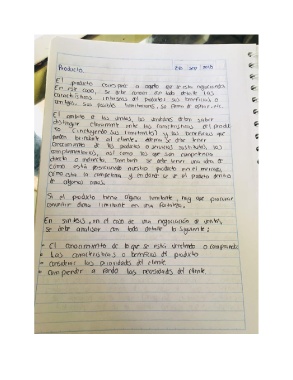 Producto
El producto corresponde a aquello que se está negociando.
En este caso, se debe conocer con todo detalle las
características internas del producto, sus beneficios o
ventajas, sus posibles limitaciones, su forma de
El ámbito de las ventas, los vendedores deben saber
distinguir claramente entre las características del producto
(incluyendo sus limitantes) y sus beneficios que
puede brindarle al cliente, además se debe tener
conocimiento de los productos o servicios sustitutos, los
complementarios, así como los que son competencia
directa o indirecta. También se debe tener una idea de
cómo está posicionado nuestro producto en el mercado,
cómo está la competencia y en donde se el producto dentro
de algunos
Si el producto tiene alguna limitante, hay que procurar
convertir dicha limitante en una fortaleza.
En síntesis, en el caso de una negociación de ventas,
se debe analizar con todo detalle lo siguiente:
El conocimiento de lo que se está vendiendo o comprando
Las características o beneficios del producto
considerar las prioridades del cliente
Comprender a fondo las necesidades del cliente